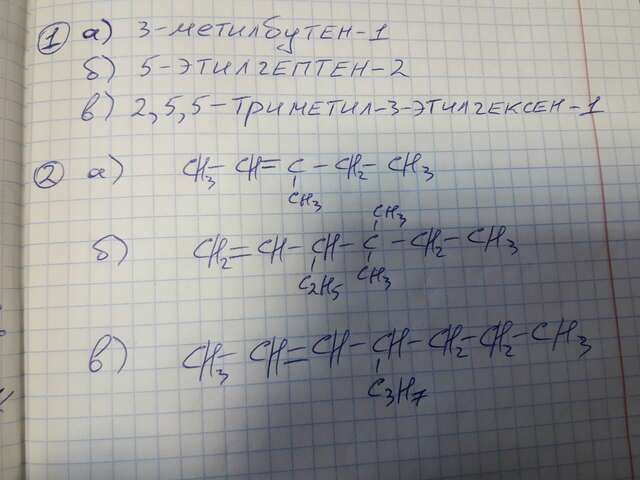 1 а) 3-метилбутен-1
б) 5-этилгептен-2
в) 2,5,5-триметил-3-этилгексен-1
2 а) CH3-CH=C-CH2-CH3
CH3
CH3
б) CH2=CH-CH-C-CH2-CH3
C2H5 CH3
в) CH3-CH=CH-CH-CH2-CH2-CH3
C3H7